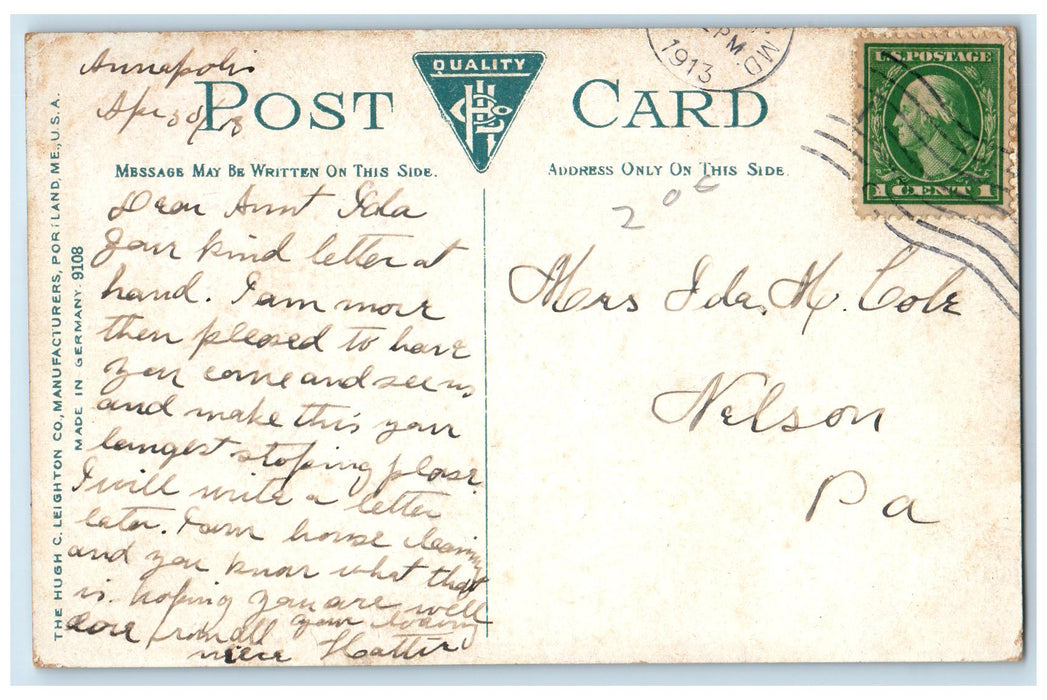 Annapolis
Apr 30/13
POST CARD
QUALITY
MESSAGE MAY BE WRITTEN ON THIS SIDE.
ADDRESS ONLY ON THIS SIDE.
1913
PM.
MD.
U.S. POSTAGE
1 CENT 1
THE HUGH C. LEIGHTON CO., MANUFACTURERS, PORTLAND, ME., U.S.A.
MADE IN GERMANY. 9108
Dear Aunt Ida
your kind letter at
hand. I am more
then pleased to have
you come and see us
and make this your
longest stoping plase.
I will write a letter
later. I am house cleaning
and you know what that
is. hoping you are well
love from all your loving
niece Hattie
20¢
Mrs Ida. M. Cole
Nelson
Pa